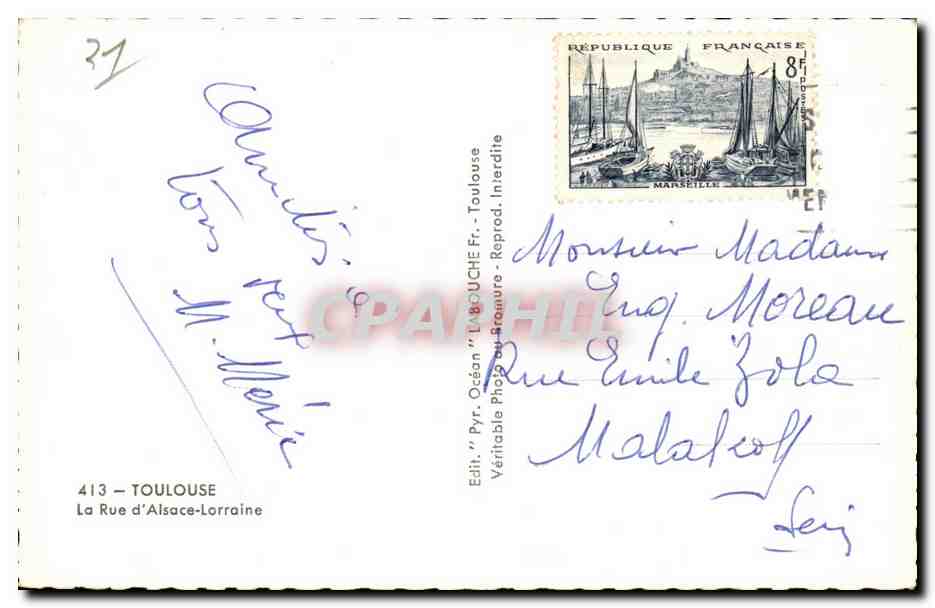 31
RÉPUBLIQUE FRANÇAISE
8F
POSTES
MARSEILLE
Amitiés
tous
M.
Edit. "Pyr. Océan" LABOUCHE Fr. - Toulouse
Véritable Photo au Bromure - Reprod. Interdite
Monsieur Madame
Eug. Moreau
Rue Emile Zola
Malakoff
Seine
CPAPHIL
413 — TOULOUSE
La Rue d'Alsace-Lorraine